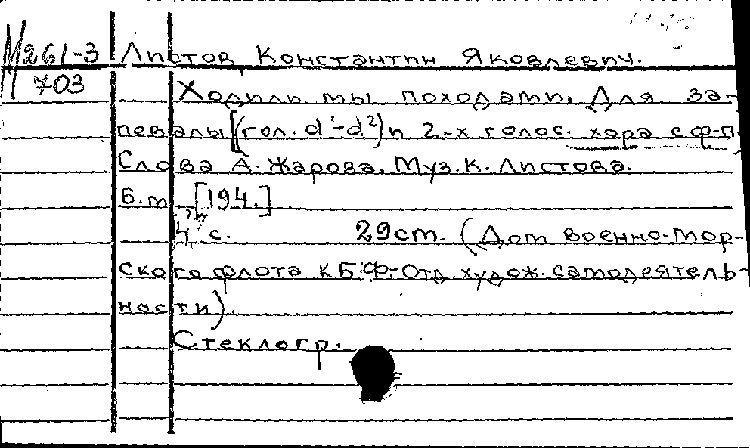 М261-3 Листов, Константин Яковлевич.
703 Ходили мы походами. Для за-
певалы [(гол. d'-d²) и 2-х голос. хора с ф-п.
Слова А. Жарова. Муз. К. Листова.
Б.м. [194.]
4 с. 29 см. (Дом военно-мор-
ского флота КБФ-Отд. худож. самодеятель-
ности).
Стеклогр.